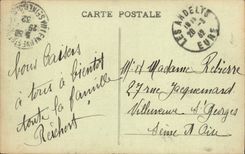 CARTE POSTALE
LES ANDELYS
EURE
Bons baisers
à tous à bientôt
toute la famille
Reichert
M. et Madame Rebierre
27 rue Jacquemard
Villeneuve St Georges
Seine et Oise